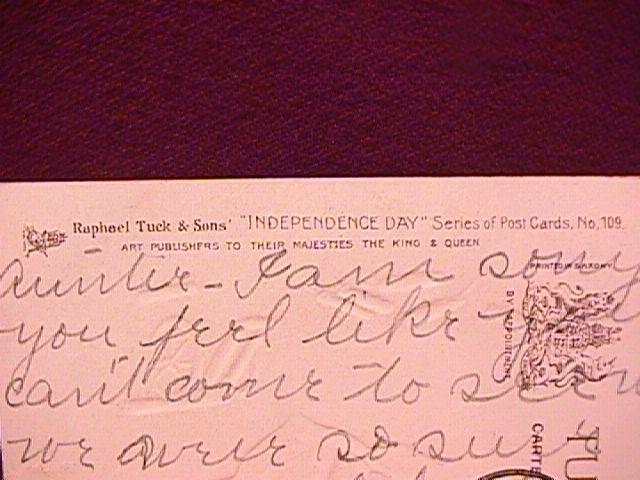 Raphael Tuck & Sons' "INDEPENDENCE DAY" Series of Post Cards. No, 109.
ART PUBLISHERS TO THEIR MAJESTIES THE KING & QUEEN
Auntie - I am sorry
PRINTED IN SAXONY
you feel like
BY APPOINTMENT
can't come to see
we were so sure
CARTE
TU